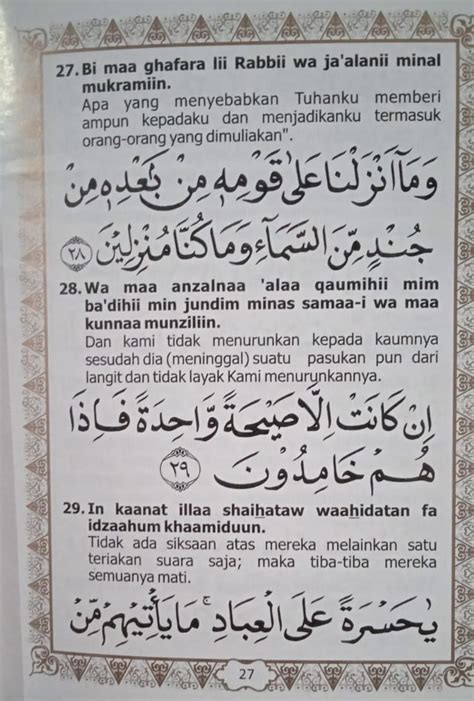 27. Bi maa ghafara lii Rabbii wa ja'alanii minal
mukramiin.
Apa yang menyebabkan Tuhanku memberi
ampun kepadaku dan menjadikanku termasuk
orang-orang yang dimuliakan".
وَمَآ اَنْزَلْنَا عَلٰى قَوْمِهٖ مِنْۢ بَعْدِهٖ مِنْ
جُنْدٍ مِّنَ السَّمَآءِ وَمَا كُنَّا مُنْزِلِيْنَ ٢٨
28. Wa maa anzalnaa 'alaa qaumihii mim
ba'dihii min jundim minas samaa-i wa maa
kunnaa munziliin.
Dan kami tidak menurunkan kepada kaumnya
sesudah dia (meninggal) suatu pasukan pun dari
langit dan tidak layak Kami menurunkannya.
اِنْ كَانَتْ اِلَّا صَيْحَةً وَّاحِدَةً فَاِذَا
هُمْ خَامِدُوْنَ ٢٩
29. In kaanat illaa shaihataw waahidatan fa
idzaahum khaamiduun.
Tidak ada siksaan atas mereka melainkan satu
teriakan suara saja; maka tiba-tiba mereka
semuanya mati.
يٰحَسْرَةً عَلَى الْعِبَادِ ۚ مَا يَأْتِيْهِمْ مِّنْ
27